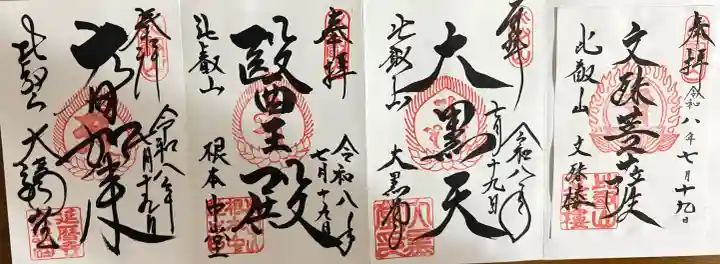 奉拝
令和八年
七月十九日
文殊菩薩
比叡山
文殊楼
奉拝
令和八年
七月十九日
大黒天
比叡山
大黒堂
奉拝
令和八年
七月十九日
醫王殿
比叡山
根本中堂
奉拝
令和八年
七月十九日
大日如来
比叡山
大講堂
延暦寺